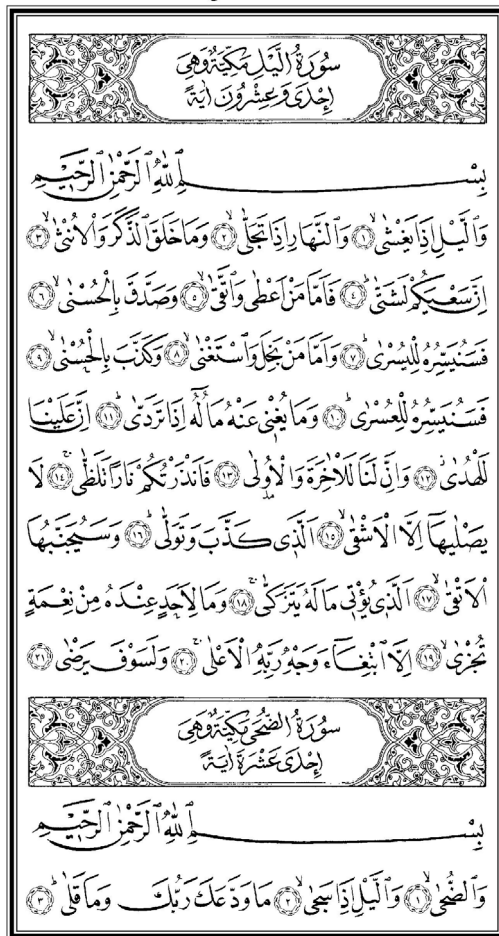 سُورَةُ الَّيْلِ مَكِّيَّةٌ وَهِيَ
اِحْدَى وَعِشْرُونَ اٰيَةً
بِسْمِ اللّٰهِ الرَّحْمٰنِ الرَّحٖيمِ
وَالَّيْلِ اِذَا يَغْشٰىۙ ﴿١﴾ وَالنَّهَارِ اِذَا تَجَلّٰىۙ ﴿٢﴾ وَمَا خَلَقَ الذَّكَرَ وَالْاُنْثٰىۙ ﴿٣﴾
اِنَّ سَعْيَكُمْ لَشَتّٰىؕ ﴿٤﴾ فَاَمَّا مَنْ اَعْطٰى وَاتَّقٰىۙ ﴿٥﴾ وَصَدَّقَ بِالْحُسْنٰىۙ ﴿٦﴾
فَسَنُيَسِّرُهُ لِلْيُسْرٰىؕ ﴿٧﴾ وَاَمَّا مَنْ بَخِلَ وَاسْتَغْنٰىۙ ﴿٨﴾ وَكَذَّبَ بِالْحُسْنٰىۙ ﴿٩﴾
فَسَنُيَسِّرُهُ لِلْعُسْرٰىؕ ﴿١٠﴾ وَمَا يُغْنٖي عَنْهُ مَالُهُٓ اِذَا تَرَدّٰىؕ ﴿١١﴾ اِنَّ عَلَيْنَا
لَلْهُدٰىؗ ﴿١٢﴾ وَاِنَّ لَنَا لَلْاٰخِرَةَ وَالْاُو۫لٰى ﴿١٣﴾ فَاَنْذَرْتُكُمْ نَاراً تَلَظّٰىۚ ﴿١٤﴾ لَا
يَصْلٰيهَٓا اِلَّا الْاَشْقٰىۙ ﴿١٥﴾ اَلَّذٖي كَذَّبَ وَتَوَلّٰىؕ ﴿١٦﴾ وَسَيُجَنَّبُهَا
الْاَتْقٰىۙ ﴿١٧﴾ اَلَّذٖي يُؤْتٖي مَالَهُ يَتَزَكّٰىۚ ﴿١٨﴾ وَمَا لِاَحَدٍ عِنْدَهُ مِنْ نِعْمَةٍ
تُجْزٰىۙ ﴿١٩﴾ اِلَّا ابْتِغَٓاءَ وَجْهِ رَبِّهِ الْاَعْلٰىۚ ﴿٢٠﴾ وَلَسَوْفَ يَرْضٰى ﴿٢١﴾
سُورَةُ الضُّحٰى مَكِّيَّةٌ وَهِيَ
اِحْدَى عَشْرَةَ اٰيَةً
بِسْمِ اللّٰهِ الرَّحْمٰنِ الرَّحٖيمِ
وَالضُّحٰىۙ ﴿١﴾ وَالَّيْلِ اِذَا سَجٰىۙ ﴿٢﴾ مَا وَدَّعَكَ رَبُّكَ وَمَا قَلٰىؕ ﴿٣﴾